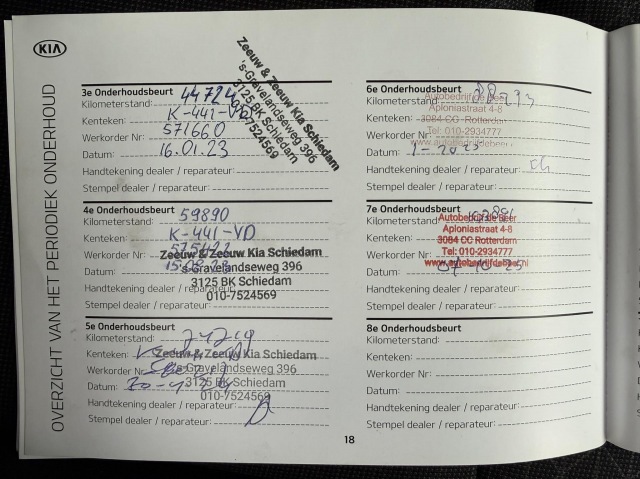 KIA
OVERZICHT VAN HET PERIODIEK ONDERHOUD
3e Onderhoudsbeurt
Kilometerstand: 44724
Kenteken: K-441-VD
Werkorder Nr: 571660
Datum: 16.01.23
Handtekening dealer / reparateur:
Stempel dealer / reparateur:
Zeeuw & Zeeuw Kia Schiedam
's-Gravelandseweg 396
3125 BK Schiedam
010-7524569
4e Onderhoudsbeurt
Kilometerstand: 59890
Kenteken: K-441-VD
Werkorder Nr:
Datum:
Handtekening dealer / reparateur:
Stempel dealer / reparateur:
Zeeuw & Zeeuw Kia Schiedam
's-Gravelandseweg 396
3125 BK Schiedam
010-7524569
5e Onderhoudsbeurt
Kilometerstand:
Kenteken:
Werkorder Nr:
Datum:
Handtekening dealer / reparateur:
Stempel dealer / reparateur:
Zeeuw & Zeeuw Kia Schiedam
's-Gravelandseweg 396
3125 BK Schiedam
010-7524569
6e Onderhoudsbeurt
Kilometerstand:
Kenteken:
Werkorder Nr:
Datum:
Handtekening dealer / reparateur:
Stempel dealer / reparateur:
Autobedrijf de Beer
Aploniastraat 4-8
3084 CC Rotterdam
Tel: 010-2934777
7e Onderhoudsbeurt
Kilometerstand:
Kenteken:
Werkorder Nr:
Datum:
Handtekening dealer / reparateur:
Stempel dealer / reparateur:
Autobedrijf de Beer
Aploniastraat 4-8
3084 CC Rotterdam
Tel: 010-2934777
www.autobedrijfdebeer.nl
8e Onderhoudsbeurt
Kilometerstand:
Kenteken:
Werkorder Nr:
Datum:
Handtekening dealer / reparateur:
Stempel dealer / reparateur:
18